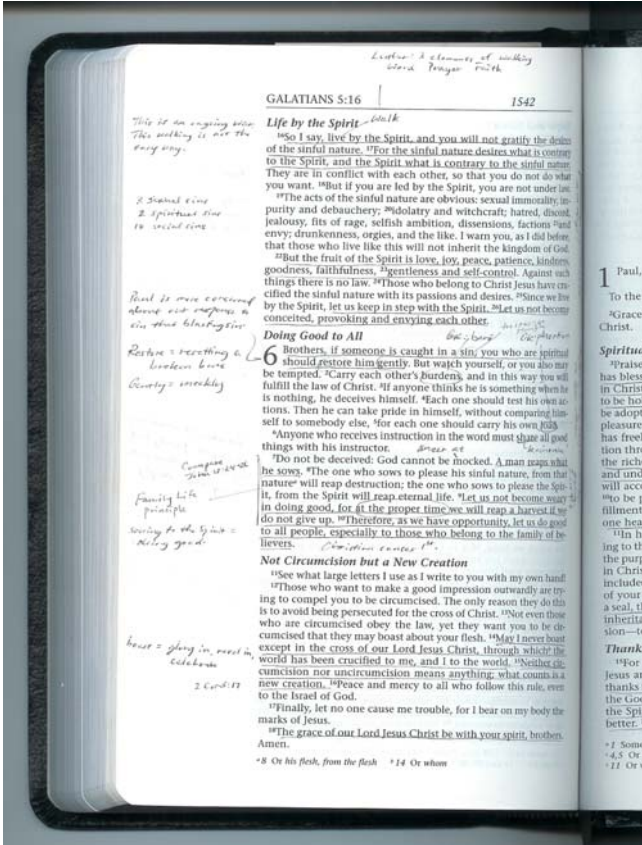 Word Prayer Faith
GALATIANS 5:16 1542
Life by the Spirit walk
This is an ongoing war.
This walking is not the
easy way.
16So I say, live by the Spirit, and you will not gratify the desires
of the sinful nature. 17For the sinful nature desires what is contrary
to the Spirit, and the Spirit what is contrary to the sinful nature.
They are in conflict with each other, so that you do not do what
you want. 18But if you are led by the Spirit, you are not under law.
19The acts of the sinful nature are obvious: sexual immorality, im-
purity and debauchery; 20idolatry and witchcraft; hatred, discord,
jealousy, fits of rage, selfish ambition, dissensions, factions 21and
envy; drunkenness, orgies, and the like. I warn you, as I did before,
that those who live like this will not inherit the kingdom of God.
3 sexual sins
2 spiritual sins
10 social sins
22But the fruit of the Spirit is love, joy, peace, patience, kindness,
goodness, faithfulness, 23gentleness and self-control. Against such
things there is no law. 24Those who belong to Christ Jesus have cru-
cified the sinful nature with its passions and desires. 25Since we live
by the Spirit, let us keep in step with the Spirit. 26Let us not become
conceited, provoking and envying each other.
Paul is more concerned
about our response to
sin than
Doing Good to All
6 Brothers, if someone is caught in a sin, you who are spiritual
should restore him gently. But watch yourself, or you also may
be tempted. 2Carry each other's burdens, and in this way you will
fulfill the law of Christ. 3If anyone thinks he is something when he
is nothing, he deceives himself. 4Each one should test his own ac-
tions. Then he can take pride in himself, without comparing him-
self to somebody else, 5for each one should carry his own load.
Restore = resetting a
broken bone
6Anyone who receives instruction in the word must share all good
things with his instructor.
7Do not be deceived: God cannot be mocked. A man reaps what
he sows. 8The one who sows to please his sinful nature, from that
natureᵃ will reap destruction; the one who sows to please the Spir-
it, from the Spirit will reap eternal life. 9Let us not become weary
in doing good, for at the proper time we will reap a harvest if we
do not give up. 10Therefore, as we have opportunity, let us do good
to all people, especially to those who belong to the family of be-
lievers.
Compare
Family Life
principle
sowing to the Spirit =
doing good.
Not Circumcision but a New Creation
11See what large letters I use as I write to you with my own hand!
12Those who want to make a good impression outwardly are try-
ing to compel you to be circumcised. The only reason they do this
is to avoid being persecuted for the cross of Christ. 13Not even those
who are circumcised obey the law, yet they want you to be cir-
cumcised that they may boast about your flesh. 14May I never boast
except in the cross of our Lord Jesus Christ, through whichᵇ the
world has been crucified to me, and I to the world. 15Neither cir-
cumcision nor uncircumcision means anything; what counts is a
new creation. 16Peace and mercy to all who follow this rule, even
to the Israel of God.
boast = glory in, revel in,
celebrate
17Finally, let no one cause me trouble, for I bear on my body the
marks of Jesus.
18The grace of our Lord Jesus Christ be with your spirit, brothers.
Amen.
ᵃ8 Or his flesh, from the flesh ᵇ14 Or whom
1 Paul,
To the
2Grace
Christ.
3Praise
has bless
in Christ
to be
be adopt
pleasure
has free
the
and
will
to be
11In
ing to
the
in Chris
include
of your
a seal,
15For
Jesus
thanks
the
the
better.